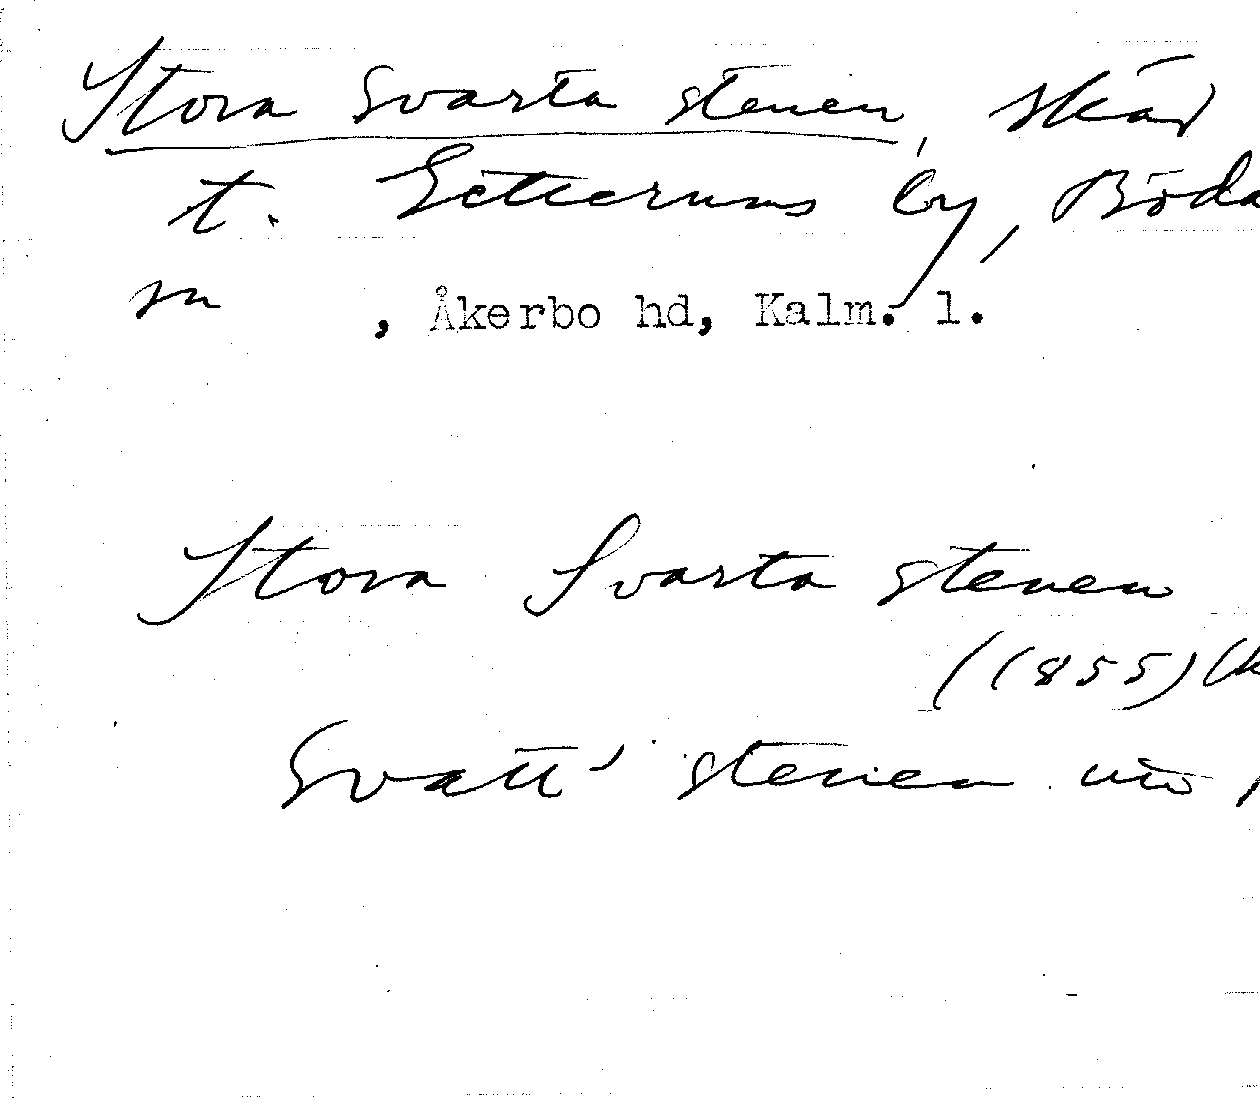 Stora Svarta stenen, skär
t. Getterums by, Böda
sn , Åkerbo hd, Kalm. l.
Stora Svarta stenen
((1855)
Svatt' stenen